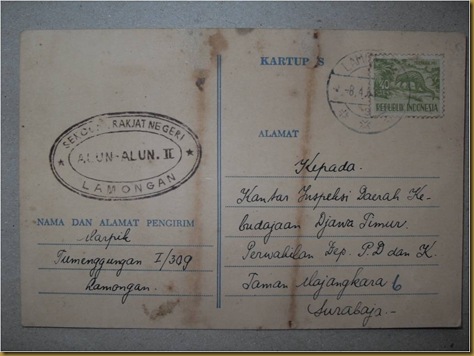 KARTUPOS
LAMO
-8.4.6
REPUBLIK INDONESIA
SEKOLAH RAKJAT NEGERI
ALUN-ALUN. II
LAMONGAN
NAMA DAN ALAMAT PENGIRIM
Marpik
Tumenggungan I/309
Lamongan.
ALAMAT
Kepada.
Kantor Inspeksi Daerah Ke-
budajaan Djawa Timur.
Perwakilan Dep. P.D dan K.
Taman Majangkara 6
Surabaja.-